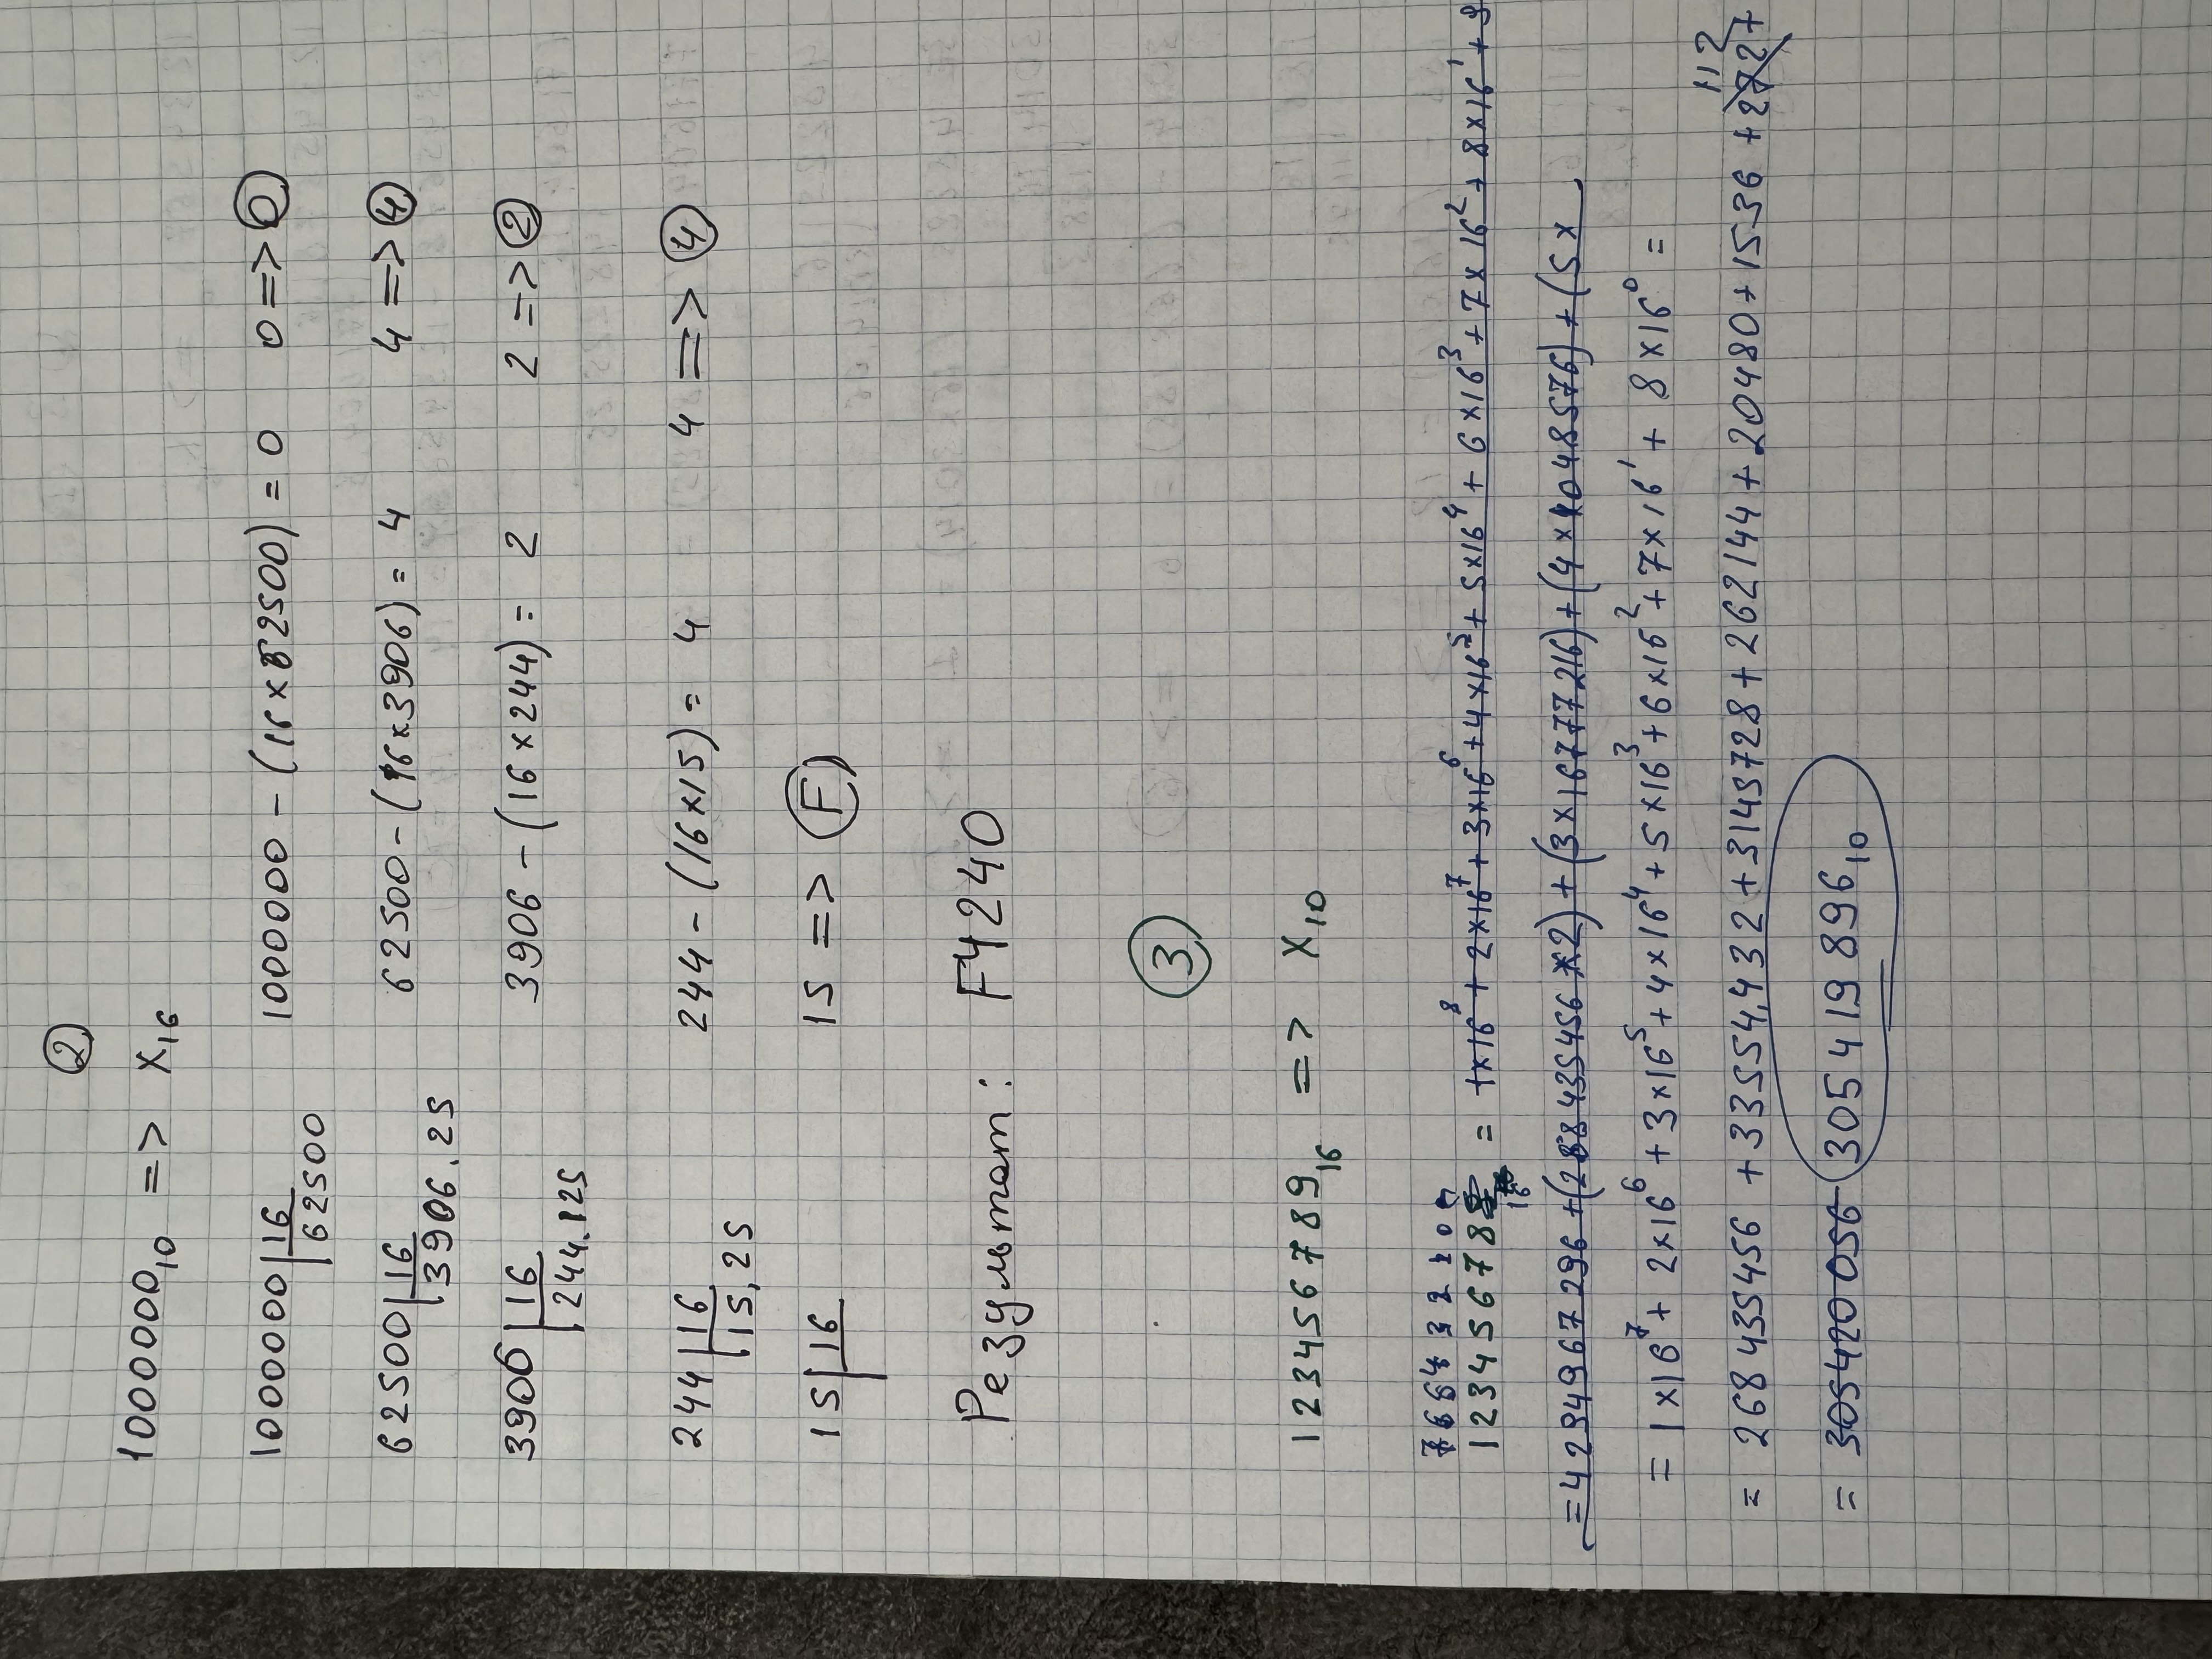 2
1000000₁₀ => X₁₆
1000000 | 16 1000000 - (16 x 62500) = 0 0 => 0
62500
62500 | 16 62500 - (16 x 3906) = 4 4 => 4
3906.25
3906 | 16 3906 - (16 x 244) = 2 2 => 2
244.125
244 | 16 244 - (16 x 15) = 4 4 => 4
15,25
15 | 16 15 => F
Результат: F4240
3
123456789₁₆ => X₁₀
12345678 ₁₆ = 1x16⁸ + 2x16⁷ + 3x16⁶ + 4x16⁵ + 5x16⁴ + 6x16³ + 7x16² + 8x16¹ + 9
= 4294967296 + (268435456 x 2) + (3 x 16777216) + (4 x 1048576) + (5 x
= 1x16⁷ + 2x16⁶ + 3x16⁵ + 4x16⁴ + 5x16³ + 6x16² + 7x16¹ + 8x16⁰ =
112
= 268435456 + 33554,432 + 3145728 + 262144 + 20480 + 1536 + 272 +
= 305420056 305419896₁₀